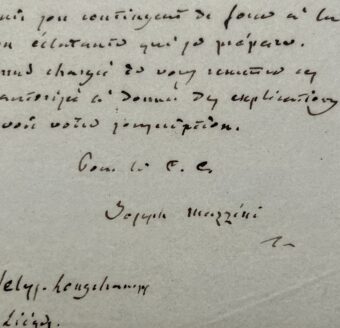 contingent de force à la
éclatante qui se prépare.
chargé de vous remettre ces
autorisé à donner des explications
votre souscription.
Pour le C. C.
Joseph Mazzini
Selys-Longchamps
Liège.